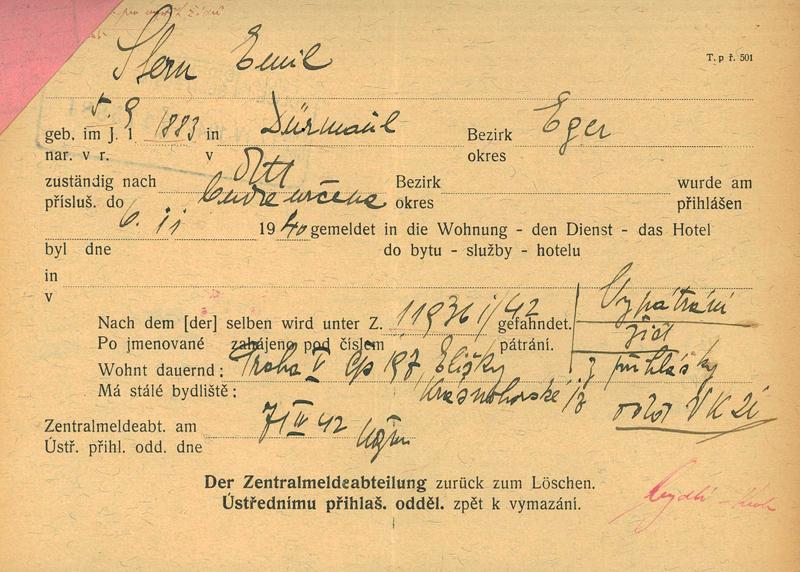 T. p ř. 501
Stern Emil
geb. im J. 1 5.9 1883 in Dürmaul Bezirk Eger
nar. v r. v okres
zuständig nach Bezirk wurde am
přísluš. do okres přihlášen
6. ii 1940 gemeldet in die Wohnung - den Dienst - das Hotel
byl dne do bytu - služby - hotelu
in
v
Nach dem [der] selben wird unter Z. 11936 i/42 gefahndet.
Po jmenované zahájeno pod číslem pátrání.
Vypátrání
žid
z přihlášky
Wohnt dauernd: Praha V čp 197, Elišky
Má stálé bydliště: Krásnohorské
Zentralmeldeabt. am 7/IV 42
Ústř. přihl. odd. dne
Der Zentralmeldeabteilung zurück zum Löschen.
Ústřednímu přihlaš. odděl. zpět k vymazání.